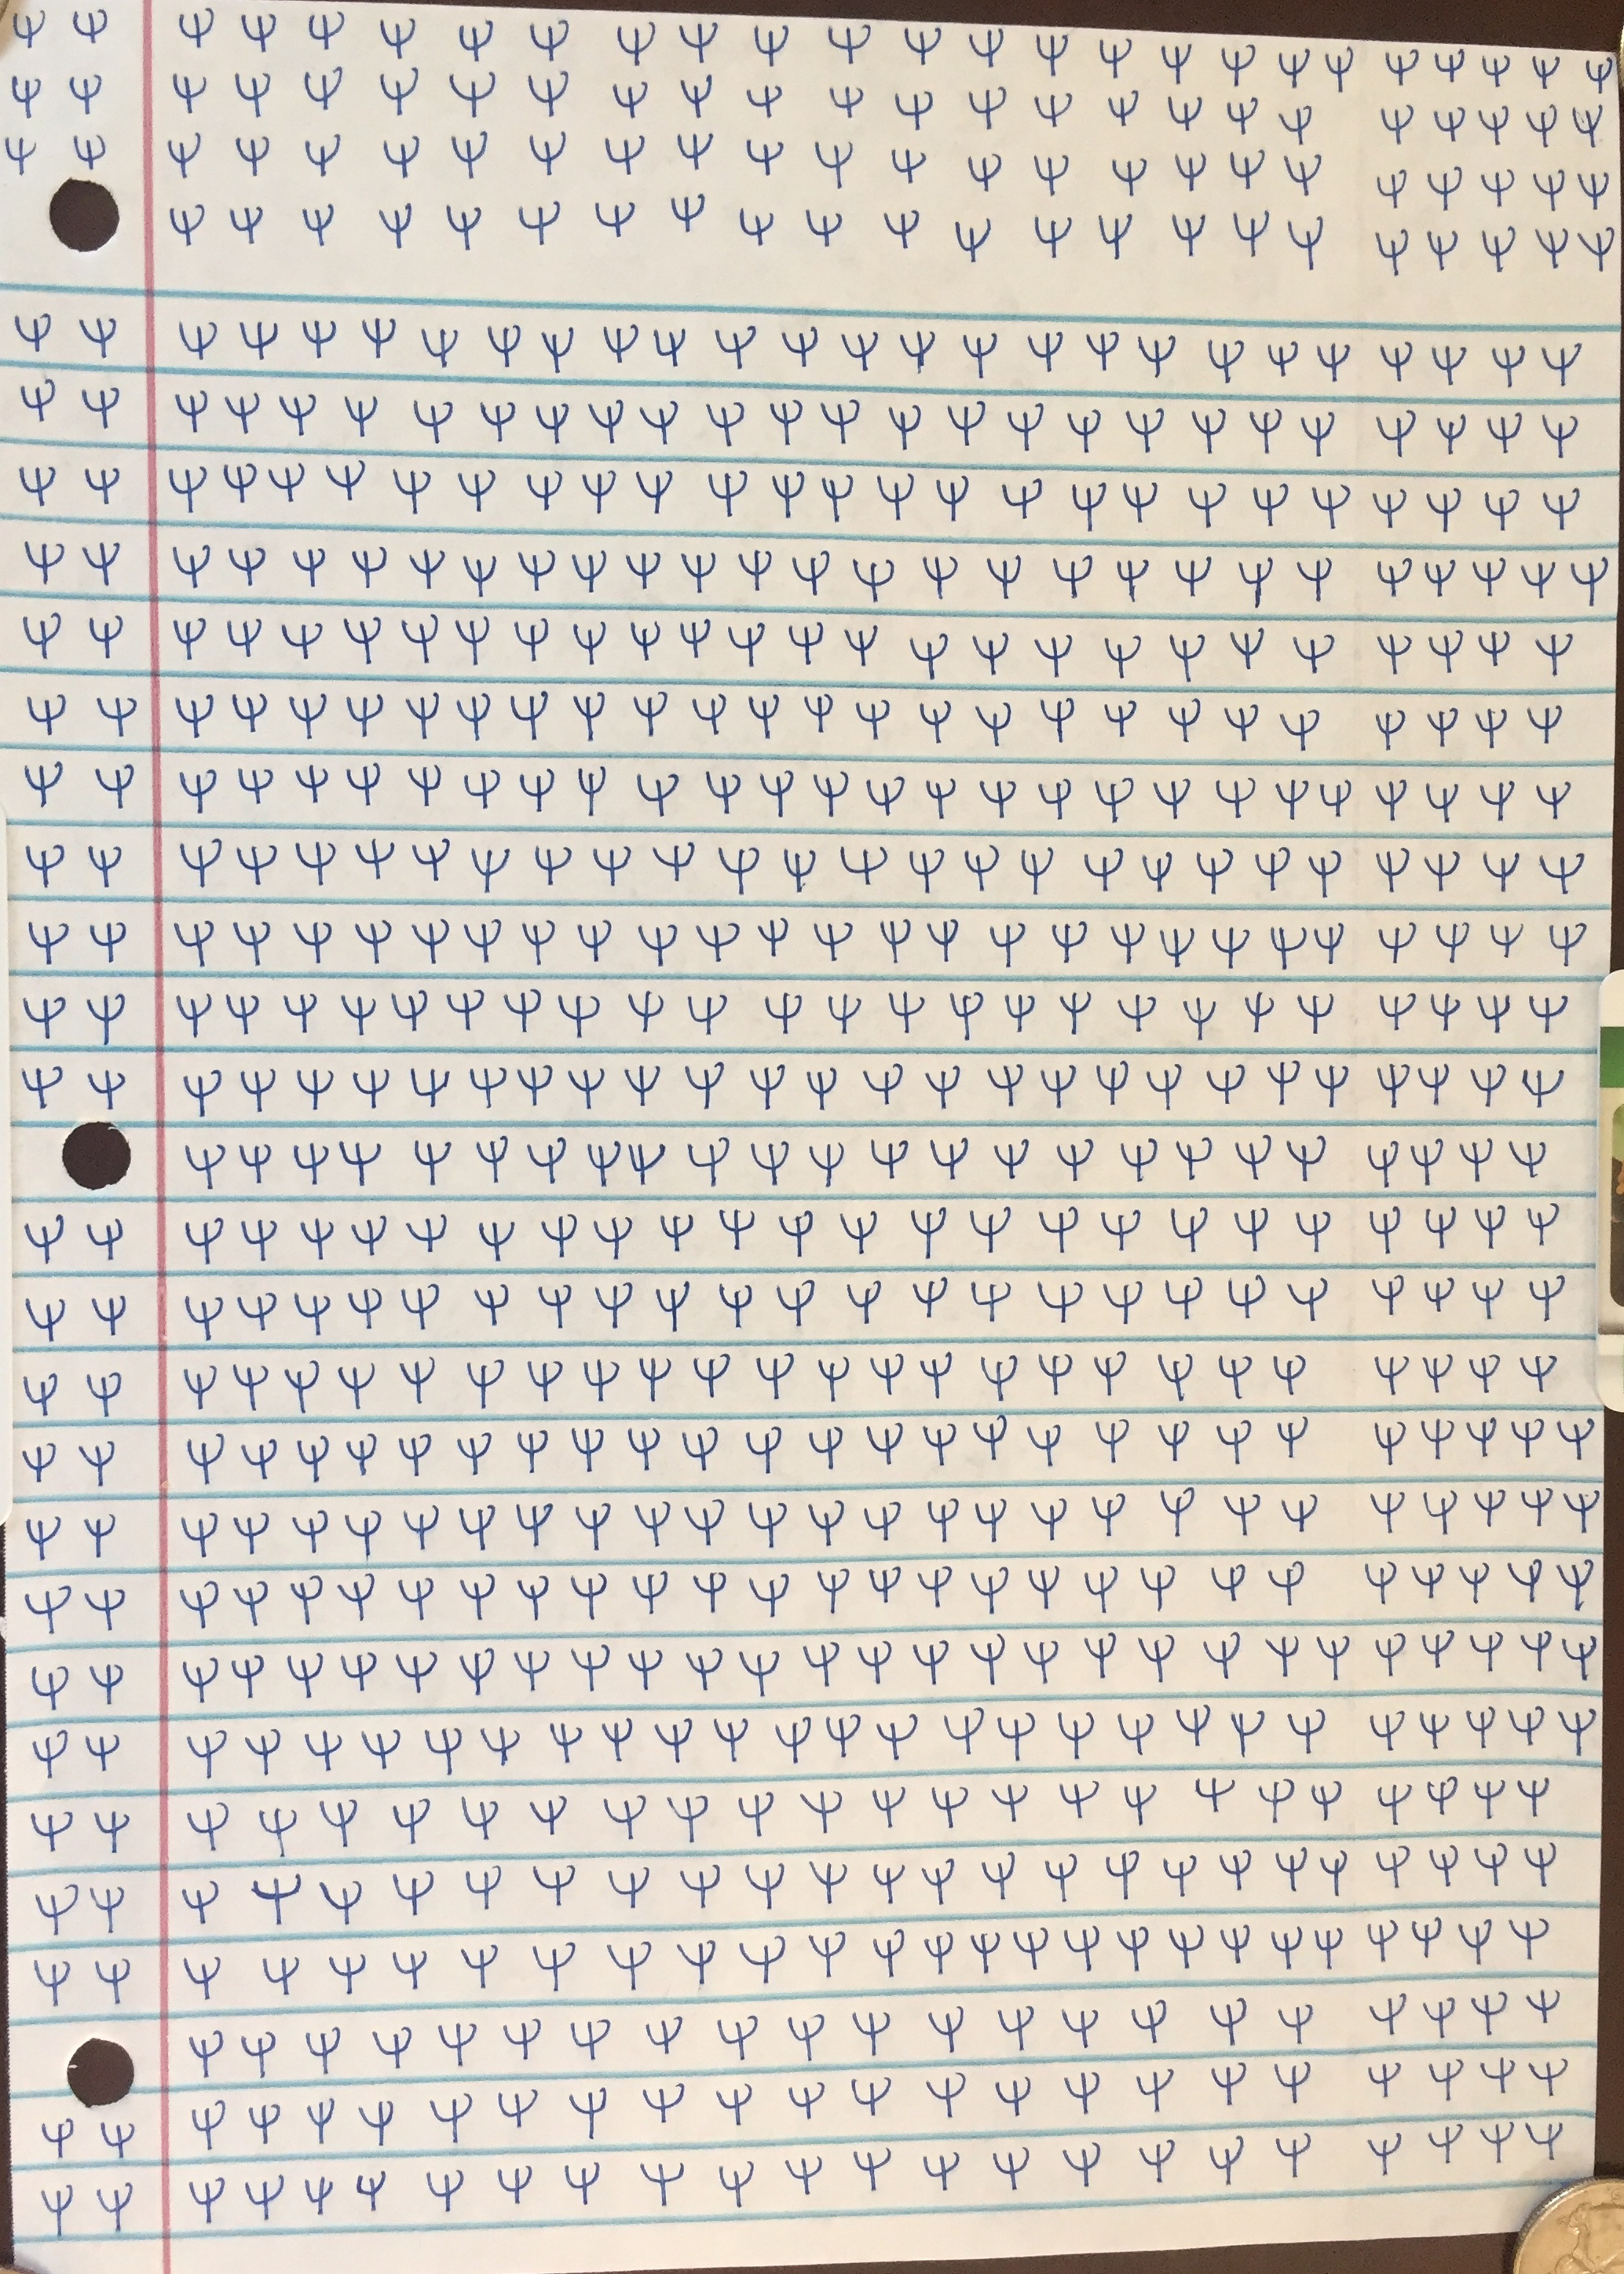 ψ ψ ψ ψ ψ ψ ψ ψ ψ ψ ψ ψ ψ ψ ψ ψ ψ ψ ψ ψ ψ ψ ψ ψ ψ
ψ ψ ψ ψ ψ ψ ψ ψ ψ ψ ψ ψ ψ ψ ψ ψ ψ ψ ψ ψ ψ ψ ψ ψ
ψ ψ ψ ψ ψ ψ ψ ψ ψ ψ ψ ψ ψ ψ ψ ψ ψ ψ ψ ψ ψ ψ ψ ψ
ψ ψ ψ ψ ψ ψ ψ ψ ψ ψ ψ ψ ψ ψ ψ ψ ψ ψ ψ ψ ψ ψ
ψ ψ ψ ψ ψ ψ ψ ψ ψ ψ ψ ψ ψ ψ ψ ψ ψ ψ ψ ψ ψ ψ ψ ψ ψ ψ
ψ ψ ψ ψ ψ ψ ψ ψ ψ ψ ψ ψ ψ ψ ψ ψ ψ ψ ψ ψ ψ ψ ψ ψ ψ ψ
ψ ψ ψ ψ ψ ψ ψ ψ ψ ψ ψ ψ ψ ψ ψ ψ ψ ψ ψ ψ ψ ψ ψ ψ ψ ψ
ψ ψ ψ ψ ψ ψ ψ ψ ψ ψ ψ ψ ψ ψ ψ ψ ψ ψ ψ ψ ψ ψ ψ ψ ψ ψ ψ
ψ ψ ψ ψ ψ ψ ψ ψ ψ ψ ψ ψ ψ ψ ψ ψ ψ ψ ψ ψ ψ ψ ψ ψ ψ ψ
ψ ψ ψ ψ ψ ψ ψ ψ ψ ψ ψ ψ ψ ψ ψ ψ ψ ψ ψ ψ ψ ψ ψ ψ ψ ψ
ψ ψ ψ ψ ψ ψ ψ ψ ψ ψ ψ ψ ψ ψ ψ ψ ψ ψ ψ ψ ψ ψ ψ ψ ψ ψ ψ
ψ ψ ψ ψ ψ ψ ψ ψ ψ ψ ψ ψ ψ ψ ψ ψ ψ ψ ψ ψ ψ ψ ψ ψ ψ ψ
ψ ψ ψ ψ ψ ψ ψ ψ ψ ψ ψ ψ ψ ψ ψ ψ ψ ψ ψ ψ ψ ψ ψ ψ ψ ψ ψ
ψ ψ ψ ψ ψ ψ ψ ψ ψ ψ ψ ψ ψ ψ ψ ψ ψ ψ ψ ψ ψ ψ ψ ψ ψ ψ
ψ ψ ψ ψ ψ ψ ψ ψ ψ ψ ψ ψ ψ ψ ψ ψ ψ ψ ψ ψ ψ ψ ψ ψ ψ ψ ψ
ψ ψ ψ ψ ψ ψ ψ ψ ψ ψ ψ ψ ψ ψ ψ ψ ψ ψ ψ ψ ψ ψ ψ ψ
ψ ψ ψ ψ ψ ψ ψ ψ ψ ψ ψ ψ ψ ψ ψ ψ ψ ψ ψ ψ ψ ψ ψ ψ ψ
ψ ψ ψ ψ ψ ψ ψ ψ ψ ψ ψ ψ ψ ψ ψ ψ ψ ψ ψ ψ ψ ψ ψ ψ ψ
ψ ψ ψ ψ ψ ψ ψ ψ ψ ψ ψ ψ ψ ψ ψ ψ ψ ψ ψ ψ ψ ψ ψ ψ ψ ψ
ψ ψ ψ ψ ψ ψ ψ ψ ψ ψ ψ ψ ψ ψ ψ ψ ψ ψ ψ ψ ψ ψ ψ ψ ψ ψ ψ
ψ ψ ψ ψ ψ ψ ψ ψ ψ ψ ψ ψ ψ ψ ψ ψ ψ ψ ψ ψ ψ ψ ψ ψ ψ ψ ψ
ψ ψ ψ ψ ψ ψ ψ ψ ψ ψ ψ ψ ψ ψ ψ ψ ψ ψ ψ ψ ψ ψ ψ ψ ψ ψ ψ
ψ ψ ψ ψ ψ ψ ψ ψ ψ ψ ψ ψ ψ ψ ψ ψ ψ ψ ψ ψ ψ ψ ψ ψ ψ ψ ψ ψ
ψ ψ ψ ψ ψ ψ ψ ψ ψ ψ ψ ψ ψ ψ ψ ψ ψ ψ ψ ψ ψ ψ ψ ψ ψ ψ ψ
ψ ψ ψ ψ ψ ψ ψ ψ ψ ψ ψ ψ ψ ψ ψ ψ ψ ψ ψ ψ ψ ψ ψ ψ
ψ ψ ψ ψ ψ ψ ψ ψ ψ ψ ψ ψ ψ ψ ψ ψ ψ ψ ψ ψ ψ ψ ψ ψ ψ
ψ ψ ψ ψ ψ ψ ψ ψ ψ ψ ψ ψ ψ ψ ψ ψ ψ ψ ψ ψ ψ ψ ψ ψ ψ ψ
ψ ψ ψ ψ ψ ψ ψ ψ ψ ψ ψ ψ ψ ψ ψ ψ ψ ψ ψ ψ ψ
ψ ψ ψ ψ ψ ψ ψ ψ ψ ψ ψ ψ ψ ψ ψ ψ ψ ψ ψ ψ ψ ψ ψ
ψ ψ ψ ψ ψ ψ ψ ψ ψ ψ ψ ψ ψ ψ ψ ψ ψ ψ ψ ψ ψ ψ ψ